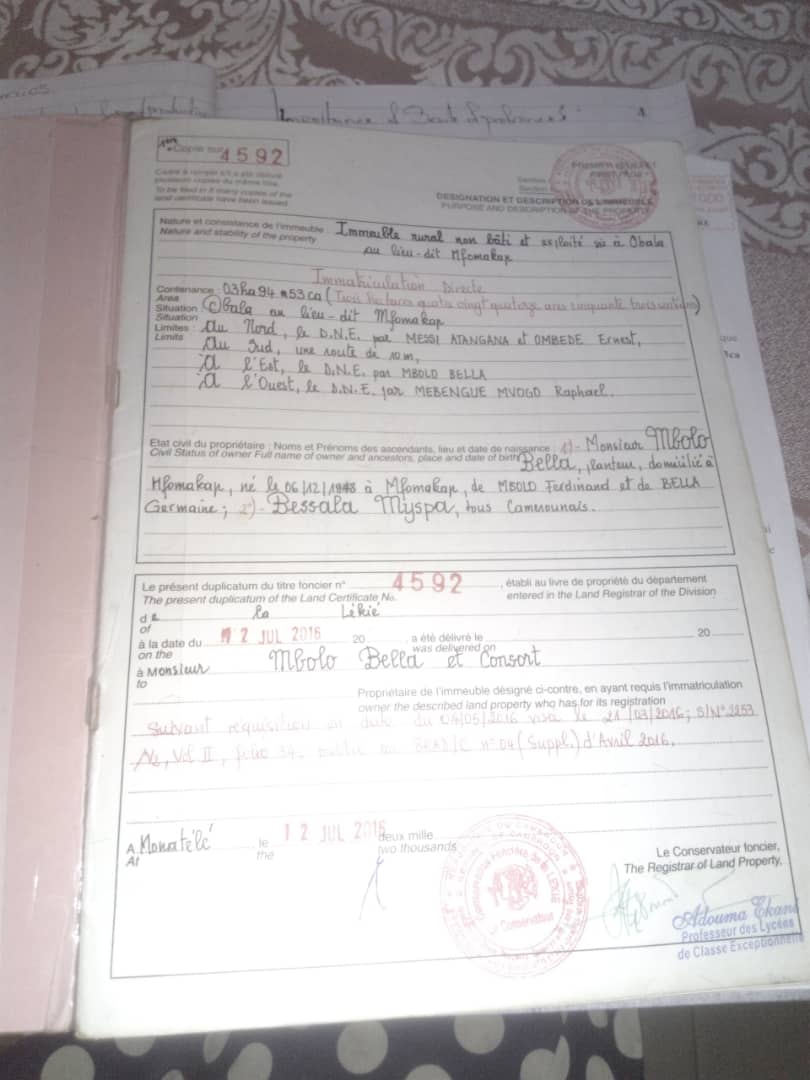 Copie sur
4592
Cadre à remplir s'il a été délivré
plusieurs copies du même titre.
To be filled in if many copies of the
land certificate have been issued
Section
Section
DESIGNATION ET DESCRIPTION DE L'IMMEUBLE
PURPOSE AND DESCRIPTION OF THE PROPERTY
Nature et consistance de l'immeuble Immeuble rural non bâti et exploité sis à Obala
Nature and stability of the property au lieu-dit Mfomakap
Immatriculation Directe
Contenance : 03ha94a53ca (Trois hectares quatre vingt quatorze ares cinquante trois centiares)
Area
Situation : Obala au lieu-dit Mfomakap
Situation
Limites : Au Nord, le D.N.E. par MESSI ATANGANA et OMBEDE Ernest,
Limits Au Sud, une route de 10m,
A l'Est, le D.N.E. par MBOLO BELLA
A l'Ouest, le D.N.E. par MEBENGUE MVOGO Raphael.
Etat civil du propriétaire : Noms et Prénoms des ascendants, lieu et date de naissance : 1)- Monsieur Mbolo
Civil Status of owner Full name of owner and ancestors, place and date of birth Bella, planteur, domicilié à
Mfomakap, né le 06/12/1948 à Mfomakap, de MBOLO Ferdinand et de BELLA
Germaine; 2)- Bessala Myspa, tous Camerounais.
Le présent duplicatum du titre foncier n° 4592 , établi au livre de propriété du département
The present duplicatum of the Land Certificate No. entered in the Land Registrar of the Division
de la Lékié
of
à la date du 12 JUL 2016 20 , a été délivré le 20
on the was delivered on
à Monsieur Mbolo Bella et Consort
to
Propriétaire de l'immeuble désigné ci-contre, en ayant requis l'immatriculation
owner the described land property who has for its registration
Suivant réquisition en date du 04/05/2016 visa le 21/03/2016; S/N° 2253
N6, Vol II, folio 34. publié au n° 04 (Suppl.) d'Avril 2016.
A Monatélé le 12 JUL 2016 deux mille
At the two thousands
Le Conservateur foncier,
The Registrar of Land Property,
Conservation
Adouma Ekani
Professeur des Lycées
de Classe Exceptionnelle